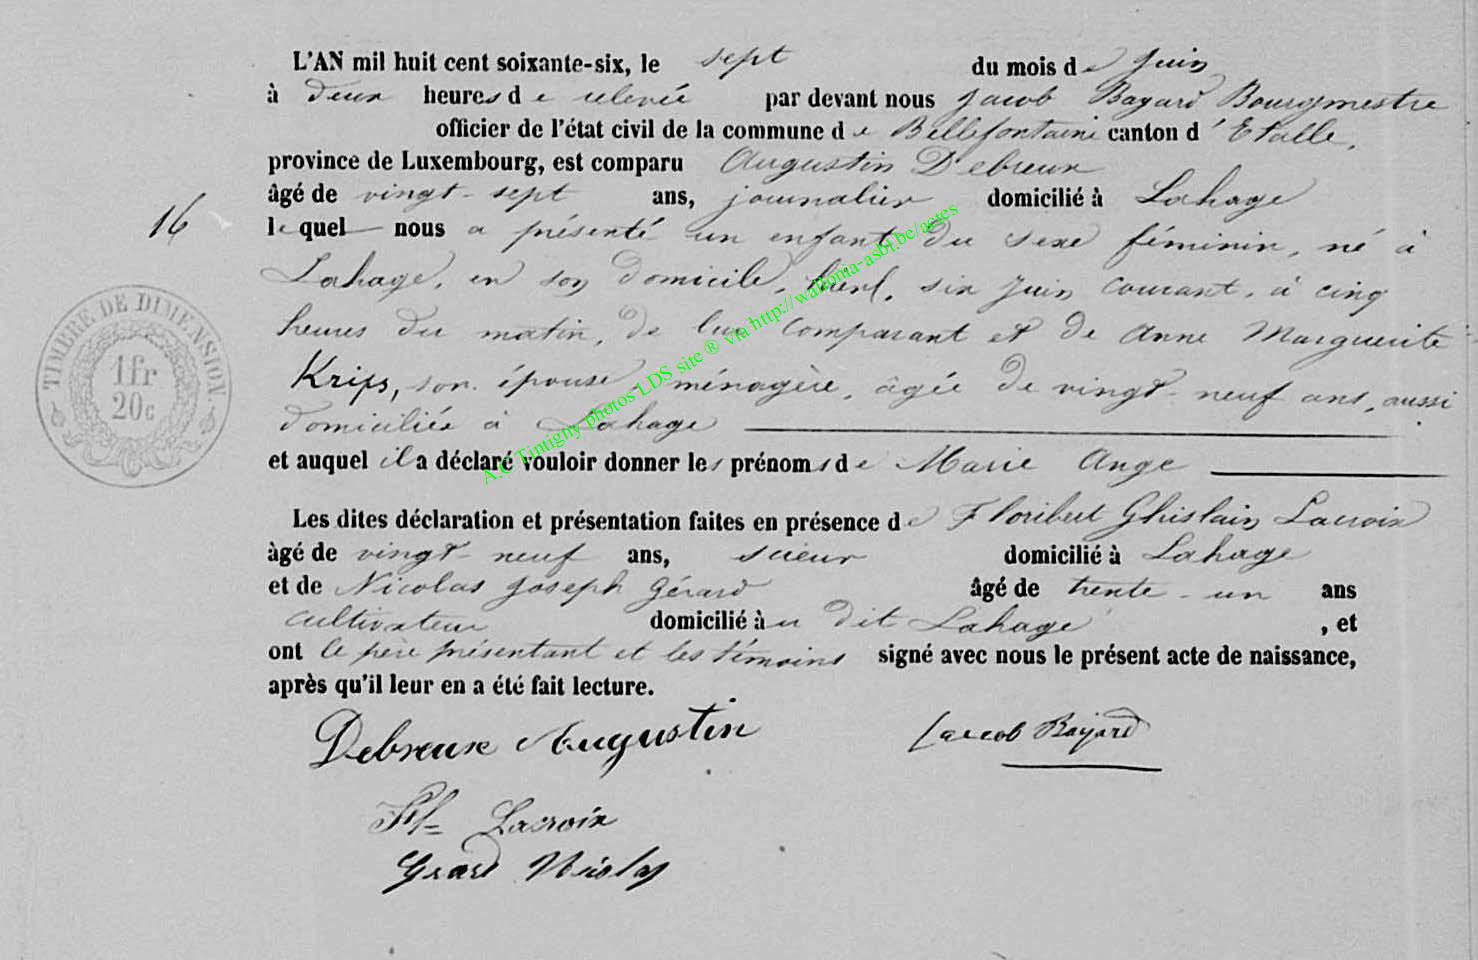 L'AN mil huit cent soixante-six, le sept du mois de juin
à deux heures de relevée par devant nous Jacob Bayard Bourgmestre
officier de l'état civil de la commune de Bellefontaine canton d'Etalle,
province de Luxembourg, est comparu Augustin Debreux
âgé de vingt-sept ans, journalier domicilié à Lahage
16 lequel nous a présenté un enfant du sexe féminin, né à
Lahage, en son domicile, hier, six juin courant, à cinq
heures du matin, de lui comparant et de Anne Marguerite
Krips, son épouse, ménagère, âgée de vingt-neuf ans, aussi
domiciliée à Lahage
et auquel il a déclaré vouloir donner les prénoms de Marie Ange
Les dites déclaration et présentation faites en présence de Floribert Ghislain Lacroix
âgé de vingt-neuf ans, scieur domicilié à Lahage
et de Nicolas Joseph Gérard âgé de trente-un ans
cultivateur domicilié au dit Lahage, et
ont le père présentant et les témoins signé avec nous le présent acte de naissance,
après qu'il leur en a été fait lecture.
Debreux Augustin Jacob Bayard
Fl= Lacroix
Gerard Nicolas
TIMBRE DE DIMENSION.
1fr
20c
A.C Tintigny photos LDS site ® via http://wallonia-asbl.be/actes